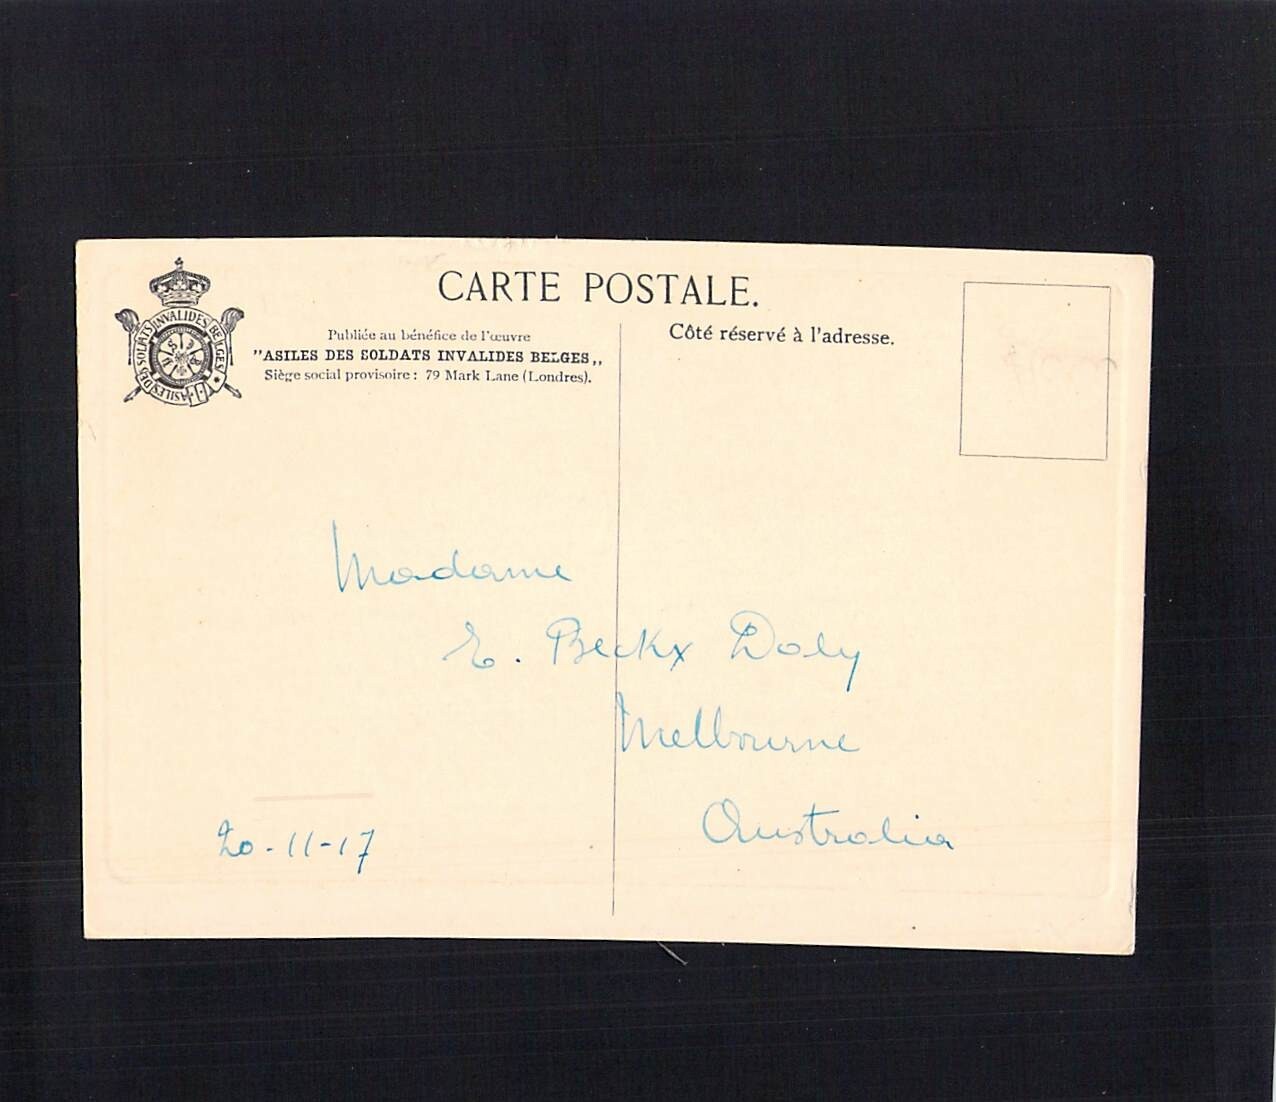 CARTE POSTALE.
Publiée au bénéfice de l'œuvre
"ASILES DES SOLDATS INVALIDES BELGES,,
Siège social provisoire : 79 Mark Lane (Londres).
ASILES DES SOLDATS INVALIDES BELGES
Côté réservé à l'adresse.
Madame
E. Beckx Daly
Melbourne
Australia
20-11-17